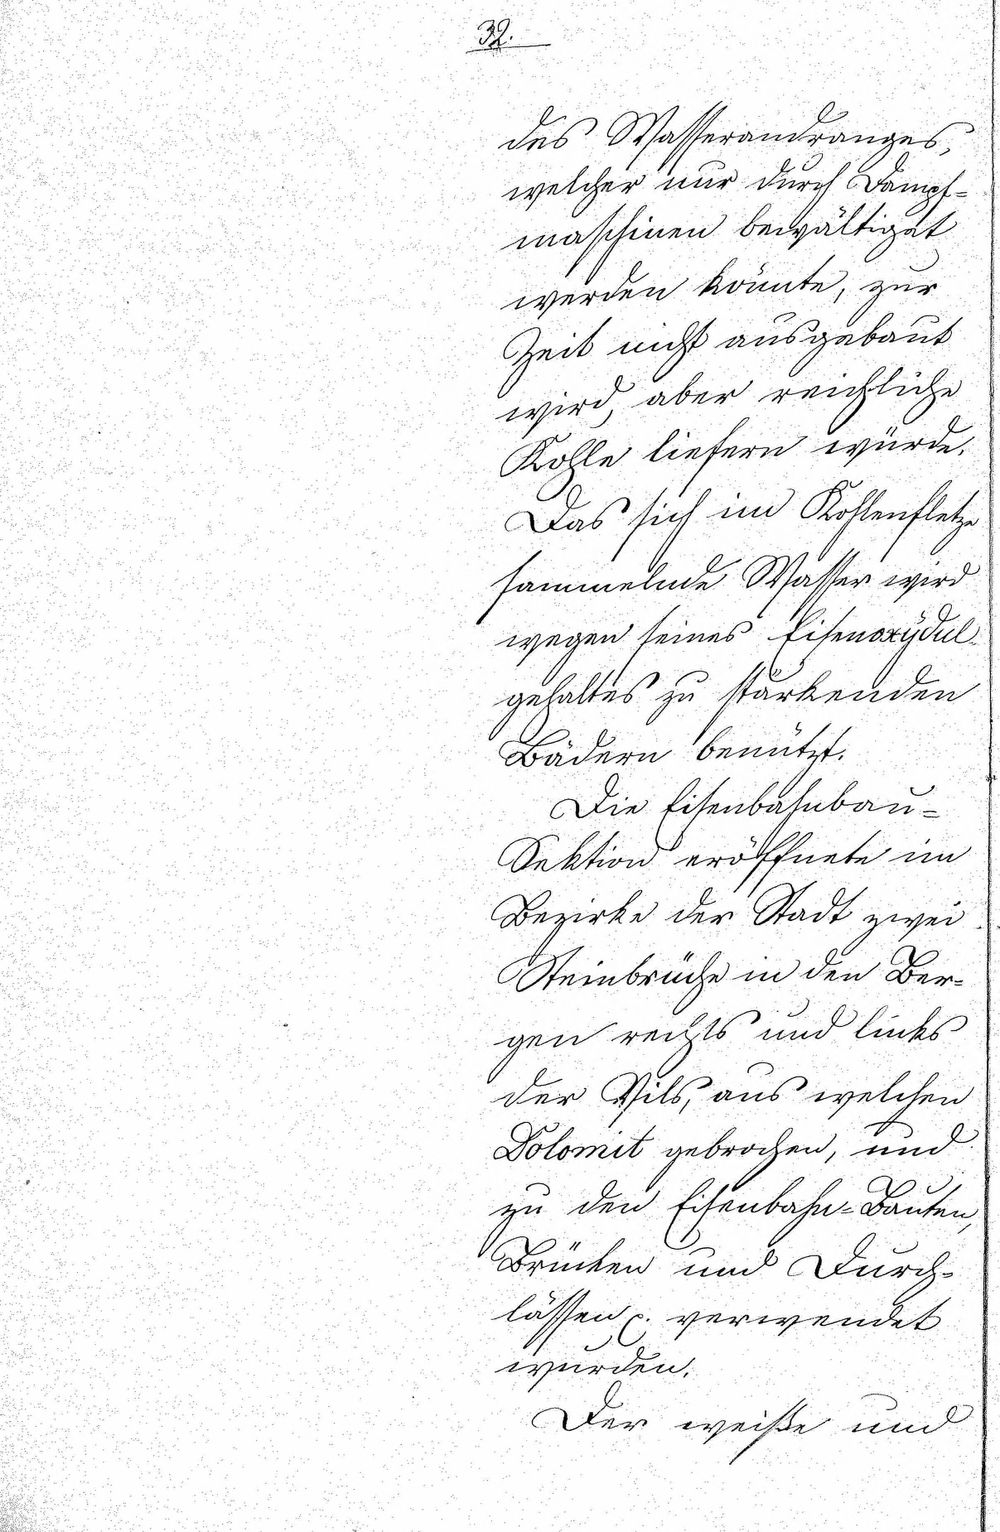 32.
des Wasserandranges,
welcher nur durch Dampf=
maschinen bewältiget
werden könnte, zur
Zeit nicht ausgebaut
wird, aber reichliche
Kohle liefern würde.
Das sich im Kohlenfletze
sammelnde Wasser wird
wegen seines Eisenoxÿdul-
gehaltes zu stärkenden
Bädern benützt.
Die Eisenbahnbau=
Sektion eröffnete im
Bezirke der Stadt zwei
Steinbrüche in den Ber=
gen rechts und links
der Vils, aus welchen
Dolomit gebrochen, und
zu den Eisenbahn=Bauten,
Brücken und Durch=
lässen c. verwendet
wurden.
Der weiße und